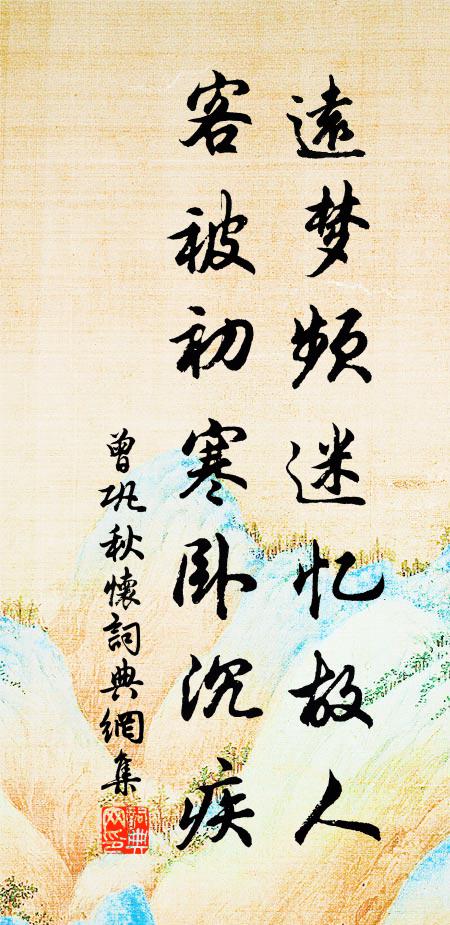 遠梦频迷忆故人
客被初寒卧沉疾
曾巩秋懷詞典網集
詞典網印